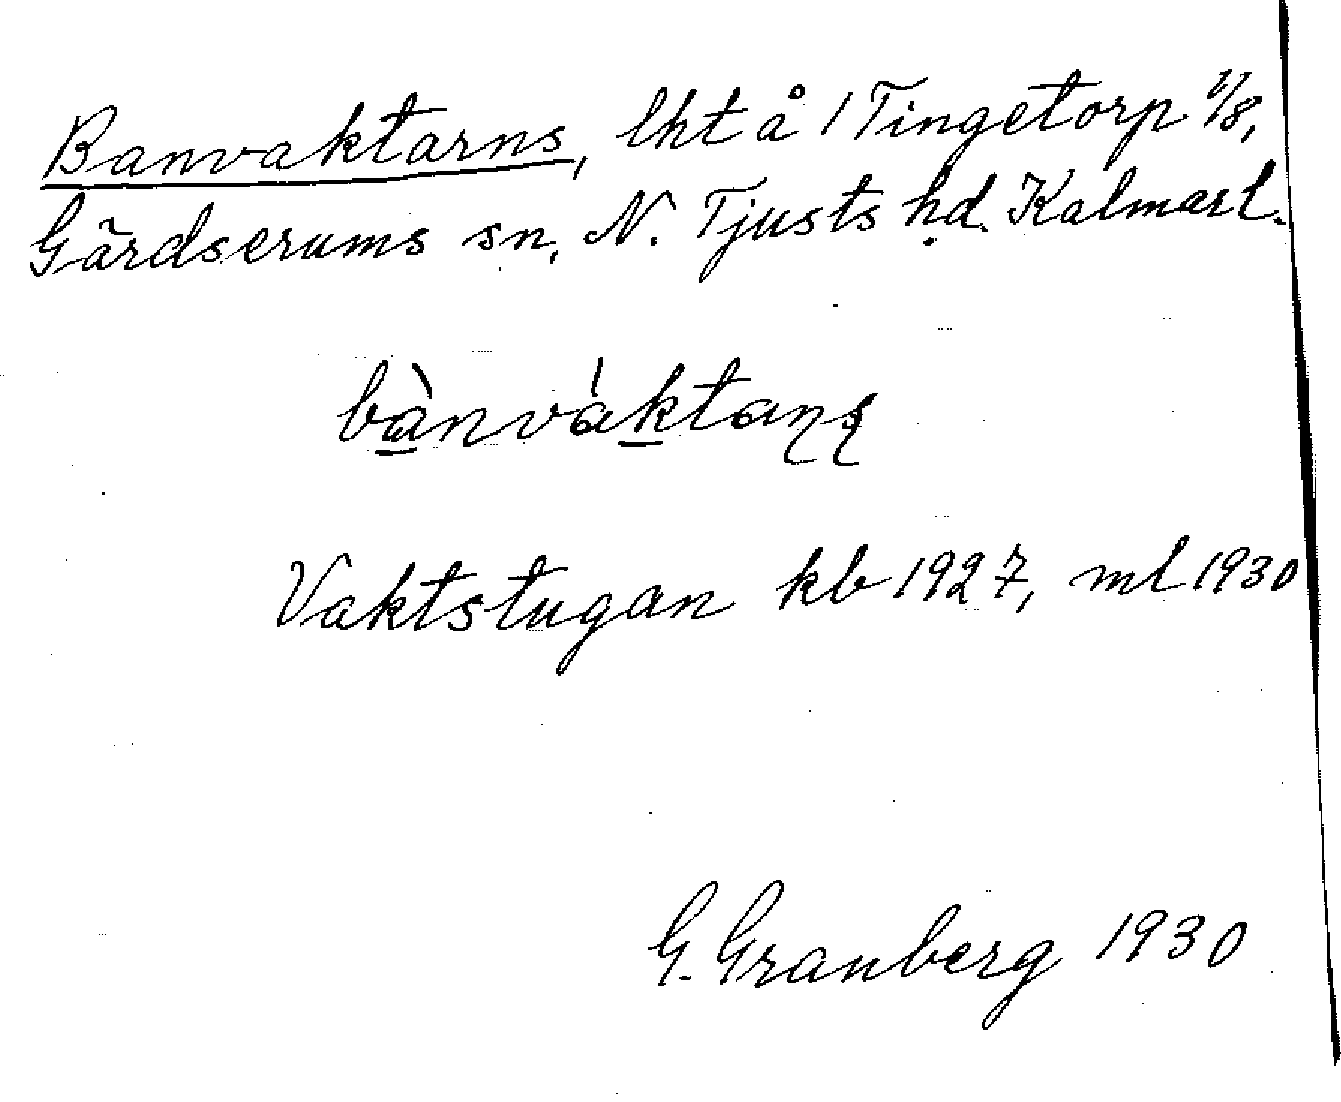 Banvaktarns, lht å 1 Tingetorp 1/8,
Gärdserums sn, N. Tjusts hd. Kalmarl.
bànvák̲taɳʂ
Vaktstugan kb 1927, ml 1930
G. Granberg 1930